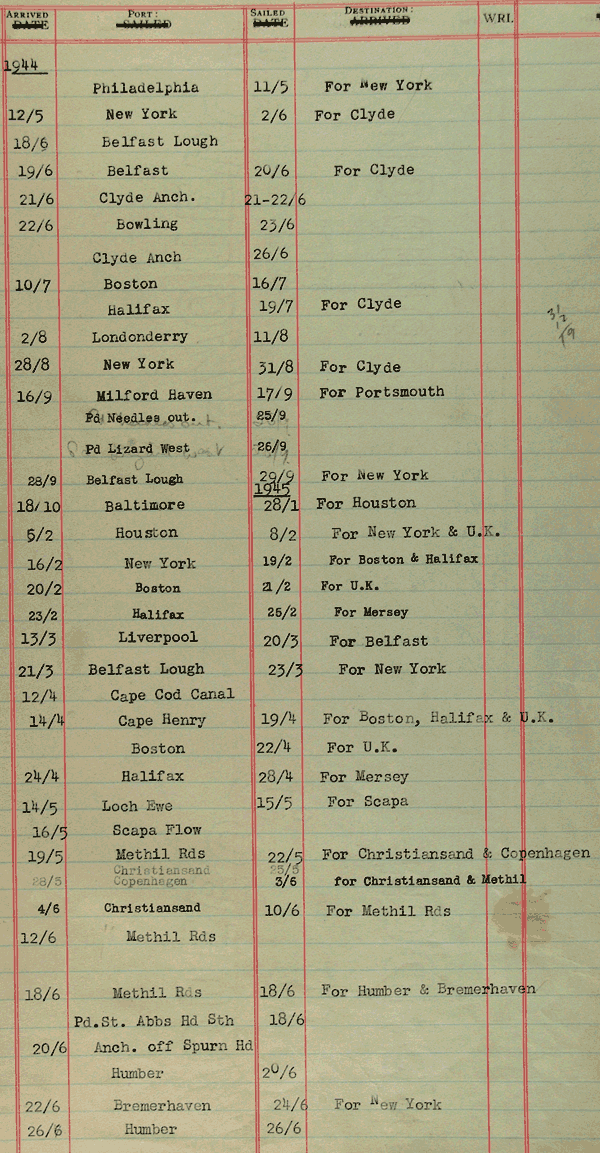 ARRIVED PORT: SAILED DESTINATION: WRL
DATE SAILED DATE ARRIVED
1944
Philadelphia 11/5 For New York
12/5 New York 2/6 For Clyde
18/6 Belfast Lough
19/6 Belfast 20/6 For Clyde
21/6 Clyde Anch. 21-22/6
22/6 Bowling 23/6
Clyde Anch 26/6
10/7 Boston 16/7
Halifax 19/7 For Clyde
2/8 Londonderry 11/8
28/8 New York 31/8 For Clyde
16/9 Milford Haven 17/9 For Portsmouth
Pd Needles out. 25/9
Pd Lizard West 26/9
28/9 Belfast Lough 29/9 For New York
1945
18/10 Baltimore 28/1 For Houston
5/2 Houston 8/2 For New York & U.K.
16/2 New York 19/2 For Boston & Halifax
20/2 Boston 21/2 For U.K.
23/2 Halifax 25/2 For Mersey
13/3 Liverpool 20/3 For Belfast
21/3 Belfast Lough 23/3 For New York
12/4 Cape Cod Canal
14/4 Cape Henry 19/4 For Boston, Halifax & U.K.
Boston 22/4 For U.K.
24/4 Halifax 28/4 For Mersey
14/5 Loch Ewe 15/5 For Scapa
16/5 Scapa Flow
19/5 Methil Rds 22/5 For Christiansand & Copenhagen
Christiansand 25/5
28/5 Copenhagen 3/6 for Christiansand & Methil
4/6 Christiansand 10/6 For Methil Rds
12/6 Methil Rds
18/6 Methil Rds 18/6 For Humber & Bremerhaven
Pd.St. Abbs Hd Sth 18/6
20/6 Anch. off Spurn Hd
Humber 20/6
22/6 Bremerhaven 24/6 For New York
26/6 Humber 26/6